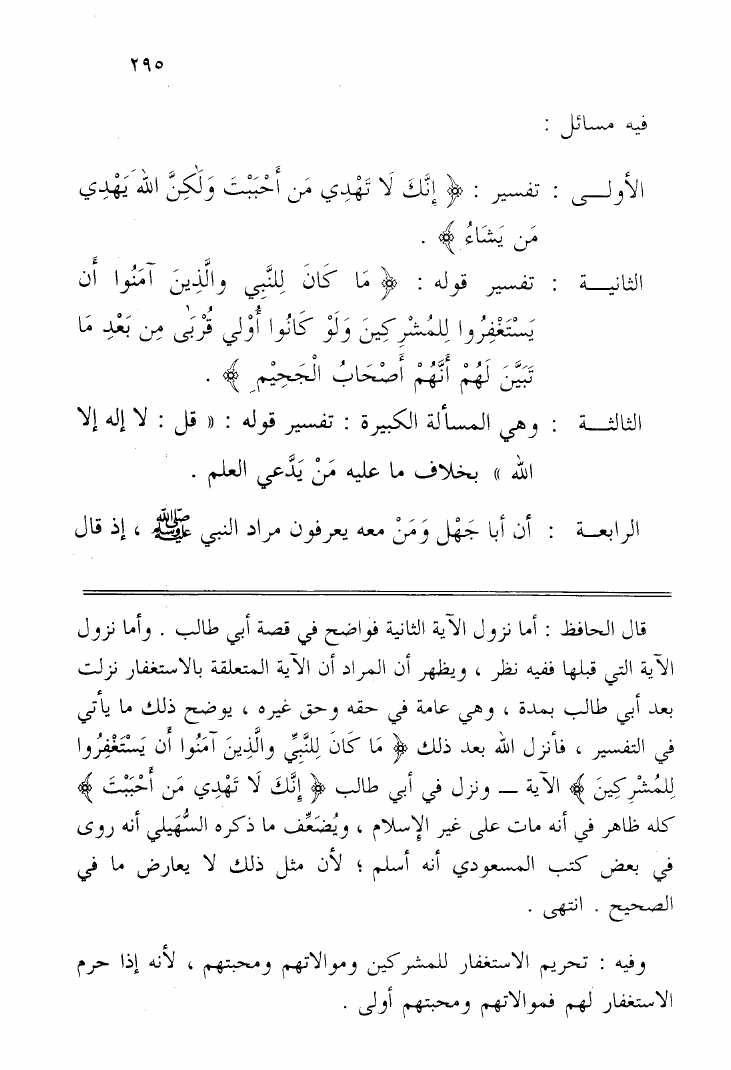 ٢٩٥
فيه مسائل :
الأولــى : تفسير : ﴿ إِنَّكَ لَا تَهْدِي مَن أَحْبَبْتَ وَلَٰكِنَّ اللهَ يَهْدِي
مَن يَشَاءُ ﴾ .
الثانيــة : تفسير قوله : ﴿ مَا كَانَ لِلنَّبِي والَّذِينَ آمَنُوا أَن
يَسْتَغْفِرُوا لِلمُشْرِكِينَ وَلَوْ كَانُوا أُوْلي قُرْبَىٰ مِن بَعْدِ مَا
تَبَيَّنَ لَهُمْ أَنَّهُمْ أَصْحَابُ الْجَحِيْمِ ﴾ .
الثالثــة : وهي المسألة الكبيرة : تفسير قوله : « قل : لا إله إلا
الله » بخلاف ما عليه مَنْ يَدَّعي العلم .
الرابعــة : أن أبا جَهْل وَمَنْ معه يعرفون مراد النبي ﷺ ، إذ قال
قال الحافظ : أما نزول الآية الثانية فواضح في قصة أبي طالب . وأما نزول
الآية التي قبلها ففيه نظر ، ويظهر أن المراد أن الآية المتعلقة بالاستغفار نزلت
بعد أبي طالب بمدة ، وهي عامة في حقه وحق غيره ، يوضح ذلك ما يأتي
في التفسير ، فأنزل الله بعد ذلك ﴿ مَا كَانَ لِلنَّبِيِّ والَّذِينَ آمَنُوا أَن يَسْتَغْفِرُوا
لِلمُشْرِكِينَ ﴾ الآية ــ ونزل في أبي طالب ﴿ إِنَّكَ لَا تَهْدِي مَن أَحْبَبْتَ ﴾
كله ظاهر في أنه مات على غير الإسلام ، ويُضَعِّف ما ذكره السُّهَيلي أنه روى
في بعض كتب المسعودي أنه أسلم ؛ لأن مثل ذلك لا يعارض ما في
الصحيح . انتهى .
وفيه : تحريم الاستغفار للمشركين وموالاتهم ومحبتهم ، لأنه إذا حرم
الاستغفار لهم فموالاتهم ومحبتهم أولى .